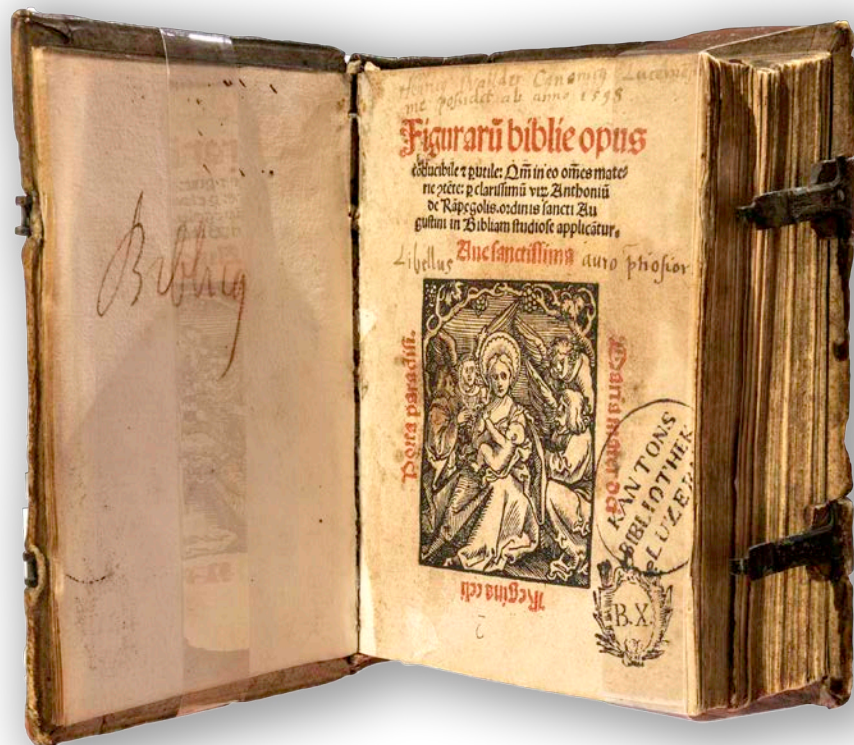 Biblia
Henricus Walder Canonicus Lucernensis
me possidet ab anno 1598
Figurarū biblie opus
cōducibile ⁊ ꝑutile: Qm̄ in eo om̄es mate⸗
rie ꝯtēte: ꝑ clarissimū viꝝ Anthoniū
de Rāpegolis. ordinis sancti Au
gustini in Bibliam studiose applicātur.
Aue sanctissima
Libellus auro p̄tiosior
Porta paradisi.
Maria mater dei
Regina celi
KANTONS
BIBLIOTHEK
LUZERN
B.X.